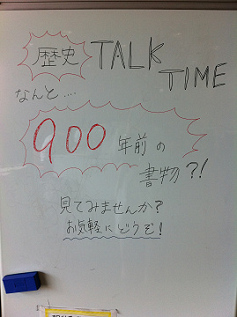 歴史 TALK TIME
なんと....
900年前の
書物?!
見てみませんか?
お気軽にどうぞ!